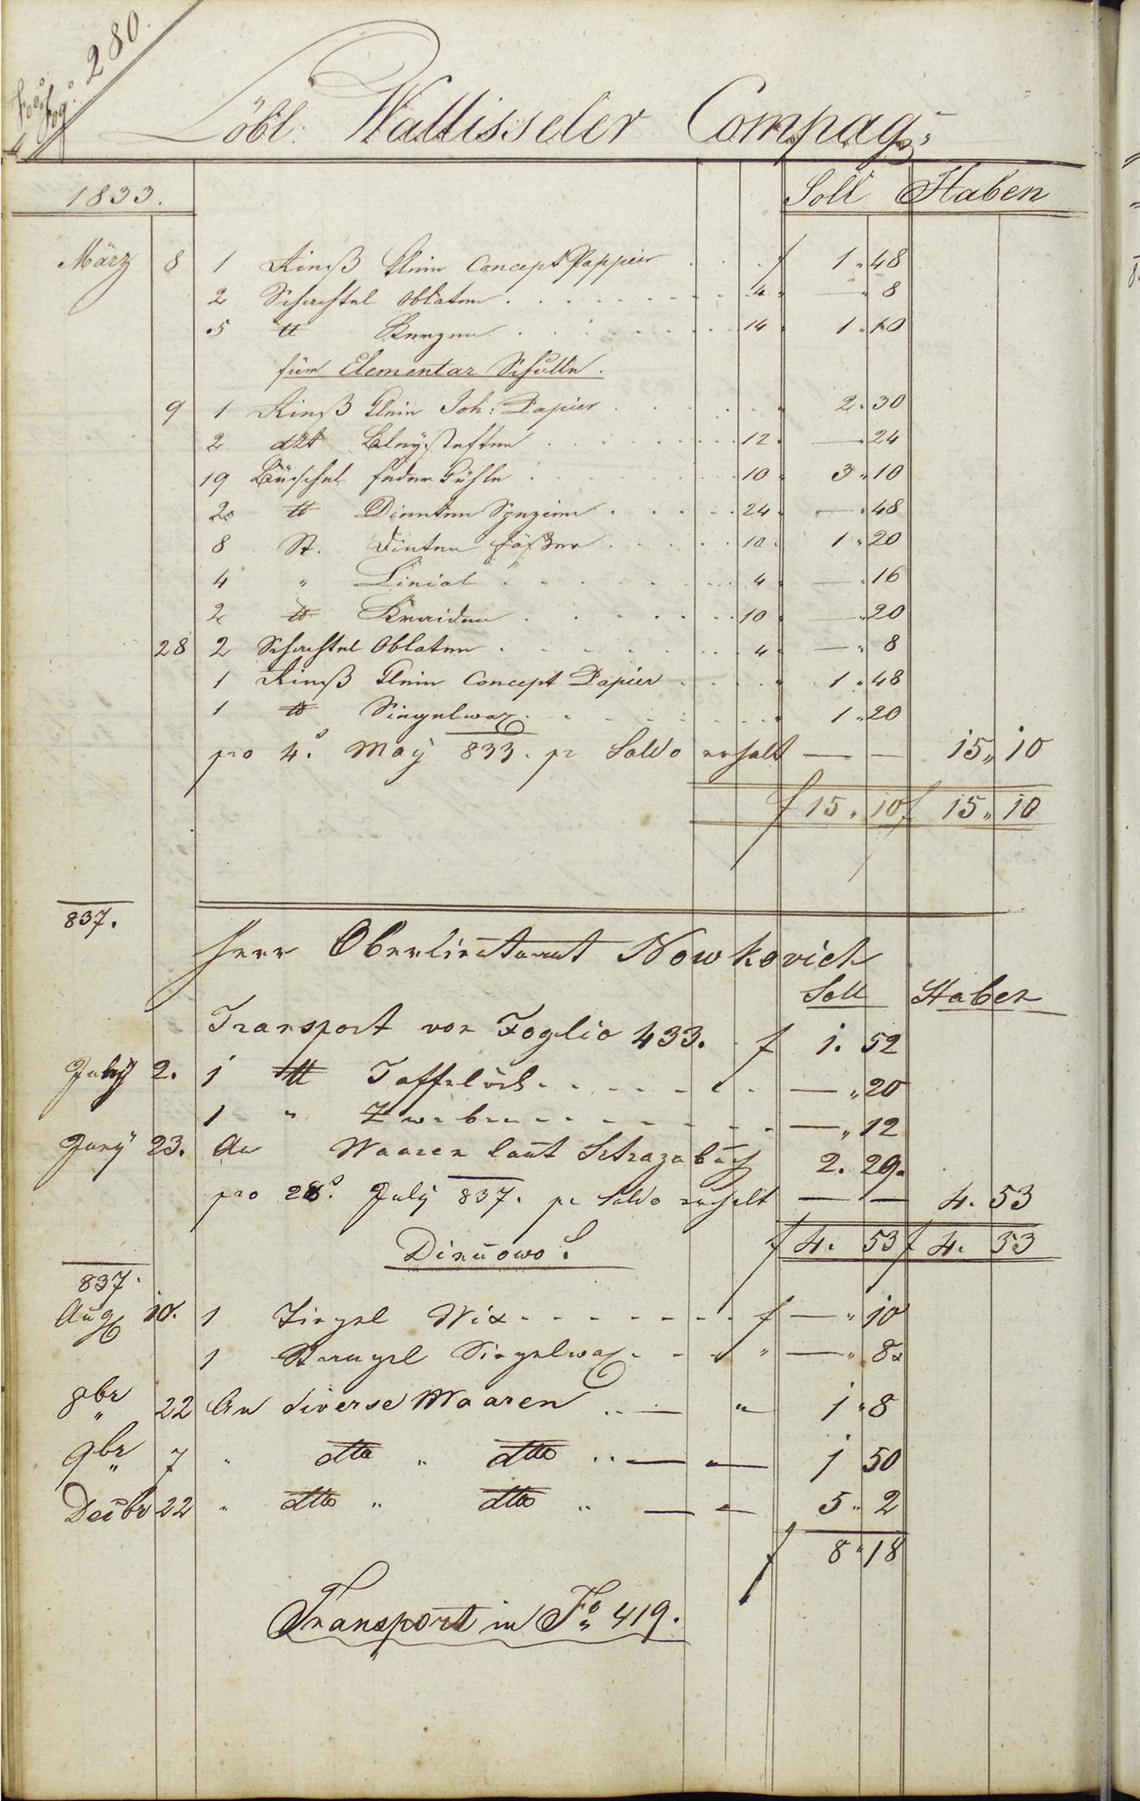 280.
Löbl: Wallisseler Compag:
1833. Soll Haben
März 8 1 Rieß klein Concept Pappier . . . f 1 " 48
2 Schachtel Oblaten . . . 4 " — " 8
5 ℔ Kerzen . . . 14 " 1 " 10
für Elementar Schulle.
9 1 Rieß klein Joh: Papier . . . " 2 " 30
2 dzt Bleystiften . . . 12 " — " 24
19 Büschel feder Kühle . . . 10 " 3 " 10
2 ℔ Dinnten Spezien . . . 24 " — " 48
8 St. Dinten fäßer . . . 10 " 1 " 20
4 " Linial . . . 4 " — " 16
2 ℔ Kreiden . . . 10 " — " 20
28 2 Schachtel Oblaten . . . 4 " — " 8
1 Rieß klein Concept Papier . . . " 1 " 48
1 ℔ Siegelwax . . . " 1 " 20
pro 4º May 833. pr Saldo erhalt — — 15 " 10
f 15 " 10 f 15 " 10
837.
Herr Oberlieutenant Nowkovich
Soll Haben
Transport von Foglio 433. f 1. 52
July 2. 1 ℔ Taffelöhl . . . — " 20
1 " Zweben . . . — " 12
23. An Waaren laut Strazabuch 2. 29
pro 28º July 837. pr Saldo erhalt — — 4. 53
f 4. 53 f 4. 53
837.
Aug 10. 1 Ziegel Wix . . . f — " 10
1 Stangel Siegelwax . . . " — " 8
8br " 22 An diverse Waaren . . — " 1 " 8
9br " 7 " dtto " dtto . . — — 1 50
Decbr 22 " dtto " dtto " — " 5 " 2
f 8 " 18
Transport in Fº 419.